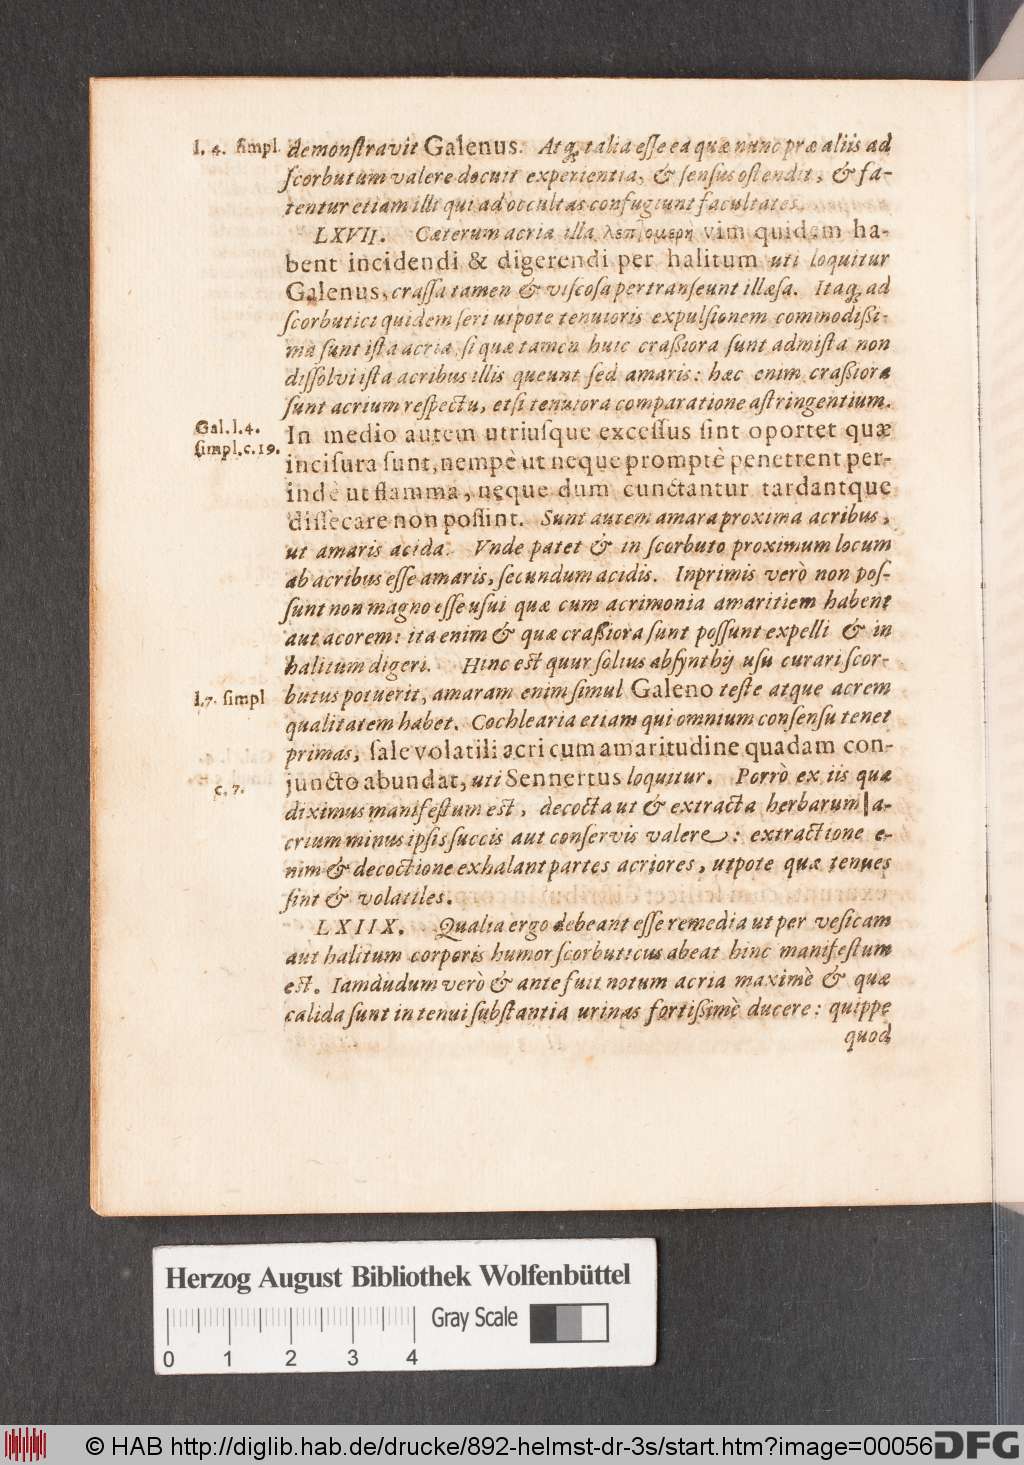 l. 4. simpl. demonstravit Galenus. Atq; talia esse ea quæ nunc præ aliis ad
scorbutum valere docuit experientia, & sensus ostendit, & fa-
tentur etiam illi qui ad occultas confugiunt facultates.
LXVII. Cæterum acria illa λεπτομερῆ vim quidem ha-
bent incidendi & digerendi per halitum uti loquitur
Galenus, crassa tamen & viscosa pertranseunt illæsa. Itaq; ad
scorbutici quidem seri utpote tenuioris expulsionem commodißi-
ma sunt ista acria, si quæ tamen huic craßiora sunt admista non
dissolvi ista acribus illis queunt sed amaris: hæc enim craßiora
sunt acrium respectu, etsi tenuiora comparatione astringentium.
Gal. l. 4.
simpl. c. 19.
In medio autem utriusque excessus sint oportet quæ
incisura sunt, nempè ut neque promptè penetrent per-
indè ut flamma, neque dum cunctantur tardantque
dissecare non possint. Sunt autem amara proxima acribus,
ut amaris acida. Vnde patet & in scorbuto proximum locum
ab acribus esse amaris, secundum acidis. Inprimis verò non pos-
sunt non magno esse usui quæ cum acrimonia amaritiem habent
aut acorem: ita enim & quæ craßiora sunt possunt expelli & in
halitum digeri. Hinc est quur solius absynthij usu curari scor-
l. 7. simpl butus potuerit, amaram enim simul Galeno teste atque acrem
qualitatem habet. Cochlearia etiam qui omnium consensu tenet
primas, sale volatili acri cum amaritudine quadam con-
c. 7. juncto abundat, uti Sennertus loquitur. Porrò ex iis quæ
diximus manifestum est, decocta ut & extracta herbarum a-
crium minus ipsis succis aut conservis valere: extractione e-
nim & decoctione exhalant partes acriores, utpote quæ tenues
sint & volatiles.
LXIIX. Qualia ergo debeant esse remedia ut per vesicam
aut halitum corporis humor scorbuticus abeat hinc manifestum
est. Iamdudum verò & ante fuit notum acria maximè & quæ
calida sunt in tenui substantia urinas fortißimè ducere: quippe
quod
Herzog August Bibliothek Wolfenbüttel
Gray Scale
0 1 2 3 4
© HAB http://diglib.hab.de/drucke/892-helmst-dr-3s/start.htm?image=00056
DFG